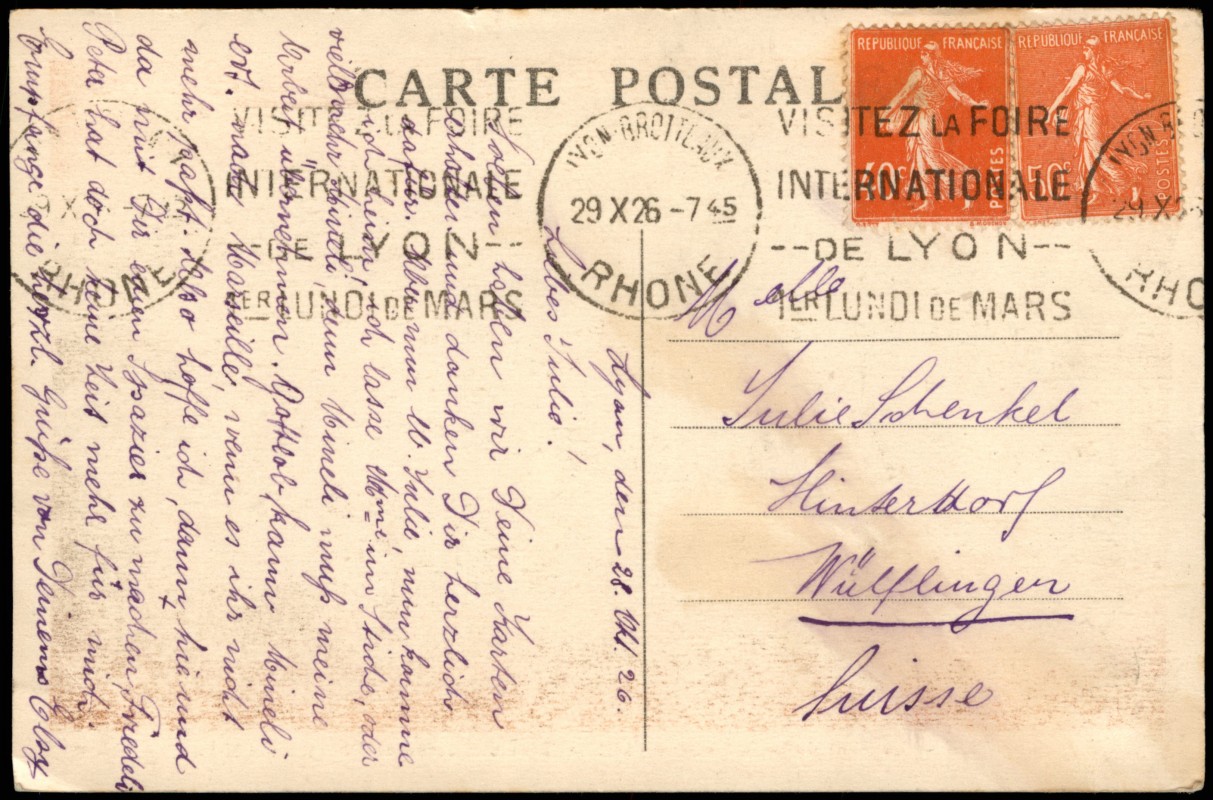 CARTE POSTALE
REPUBLIQUE FRANÇAISE
40c POSTES
REPUBLIQUE FRANÇAISE
50c POSTES
VISITEZ LA FOIRE
INTERNATIONALE
--DE LYON--
1ER LUNDI DE MARS
LYON-BROTTEAUX
29 X 26 -7 45
RHONE
VISITEZ LA FOIRE
INTERNATIONALE
--DE LYON--
1ER LUNDI DE MARS
LYON-BRO
29 X 26
RHO
RHONE
Lyon, den 28. Okt. 26.
Liebes Julie!
Soeben holten wir Deine Karten
und danken Dir herzlich
dafür. Aber nun lb. Julie, nun komme
ich heim, ich lasse Mme im Stiche, oder
vielmehr Mineli, denn Mineli muß meine
Arbeit übernehmen. Gottlob kann Mineli
ev. nach Marseille, wenn es ihr nicht
mehr paßt. Also hoffe ich, dann hie und
da mit Dir einen Spazier zu machen, Friedeli
Peter hat doch keine Zeit mehr für mich.
Empfange die herzl. Grüße von Deinem
Melle
Julie Schenkel
Hinterdorf
Wülflingen
Suisse